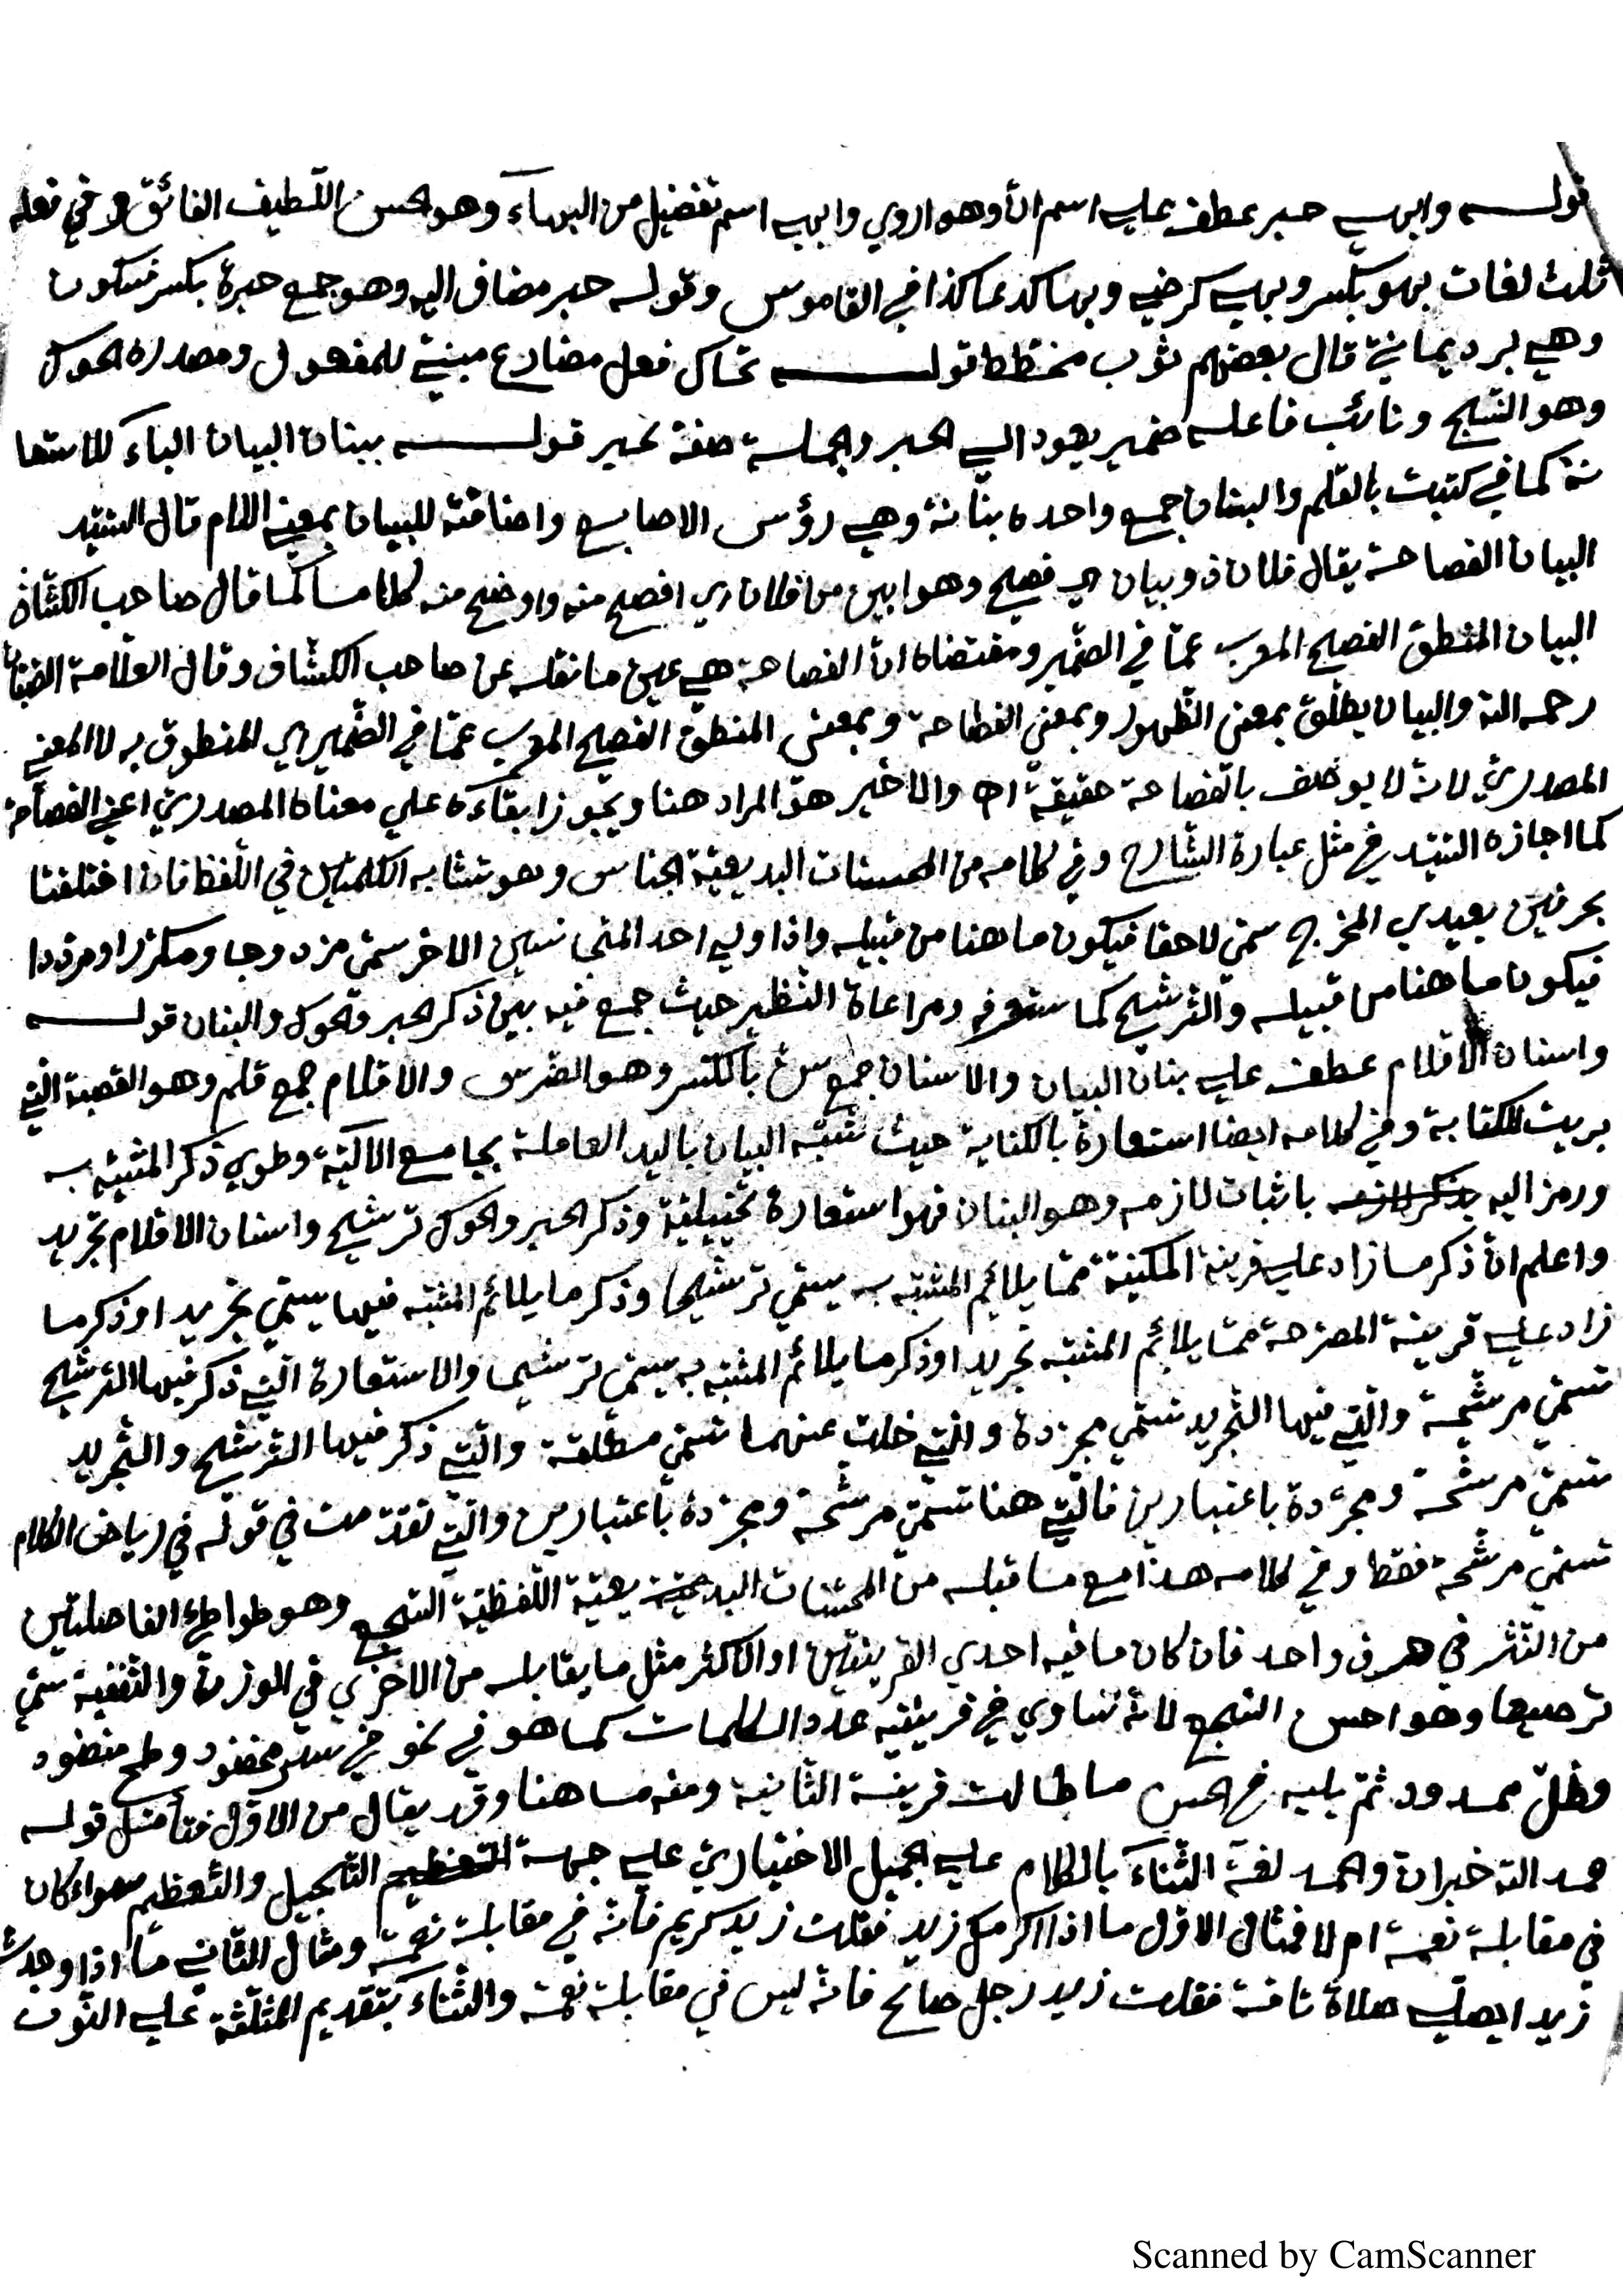 قوله وابهى حبر عطف على اسم ان وهو اروى وابهى اسم تفضيل من البهاء وهو الحسن اللطيف الفائق وفي فعله
ثلث لغات بهو بكسر وبهى كرضى وبها كدعا كذا في القاموس وقوله حبر مضاف اليه وهو جمع حبرة بكسر فسكون
وهي برد يمانية قال بعضهم ثوب مخطط قوله تحاك فعل مضارع مبنية للمفعول ومصدره الحوك
وهو النسج ونائب فاعله ضمير يعود الى الحبر والجملة صفة لحبر قوله ببنان البيان الباء للاستعا
نة كما في كتبت بالقلم والبنان جمع واحده بنانة وهي رؤس الاصابع واضافته للبيان بمعنى اللام قال السيد
البيان الفصاحة يقال فلان ذو بيان اي فصيح وهو ابين من فلان اي افصح منه واوضح منه كلاما كما قال صاحب الكشاف
البيان المنطق الفصيح المعرب عما في الضمير ومقتضاه ان الفصاحة هي عين ما نقله عن صاحب الكشاف وقال العلامة الصبان
رحمه الله والبيان يطلق بمعنى الظهور وبمعنى الفصاحة وبمعنى المنطق الفصيح المعرب عما في الضمير اي المنطوق به لا المعنى
المصدري لانه لا يوصف بالفصاحة حقيقة اه والاخير هو المراد هنا ويجوز ابقاءه على معناه المصدري اعني الفصاحة
كما اجازه السيد في مثل عبارة الشارح وفي كلامه من المحسنات البديعية الجناس وهو تشابه الكلمتين في اللفظ فان اختلفتا
بحرفين بعيدي المخرج سمي لاحقا فيكون ما هنا من قبيله واذا ولي احد المتجانسين الاخر سمي مزدوجا ومكررا ومرددا
فيكون ما هنا من قبيله والترشيح كما ستعرفه ومراعاة النظير حيث جمع فيه بين ذكر الحبر والحوك والبنان قوله
واسنان الاقلام عطف على بنان البيان والاسنان جمع سن بالكسر وهو الضرس والاقلام جمع قلم وهو القصبة التي
بريت للكتابة وفي كلامه ايضا استعارة بالكناية حيث شبه البيان باليد العاملة بجامع الالية وطوي ذكر المشبه به
ورمز اليه بذكر لازمه باثبات لازمه وهو البنان فهو استعارة تخييلية وذكر الحبر والحوك ترشيح واسنان الاقلام تجريد
واعلم ان ذكر ما زاد على قرينة المكنية مما يلائم المشبه به يسمى ترشيحا وذكر ما يلائم المشبه فيها يسمى تجريدا وذكر ما
زاد على قرينة المصرحة مما يلائم المشبه تجريدا وذكر ما يلائم المشبه به يسمى ترشيحا والاستعارة التي ذكر فيها الترشيح
تسمى مرشحة والتي فيها التجريد تسمى مجردة والتي خلت عنهما تسمى مطلقة والتي ذكر فيها الترشيح والتجريد
تسمى مرشحة ومجردة باعتبارين فالتي هنا تسمى مرشحة ومجردة باعتبارين والتي تقدمت في قوله في رياض الكلام
تسمى مرشحة فقط وفي كلامه هذا مع ما قبله من المحسنات البديعية اللفظية السجع وهو طواطئ الفاصلتين
من النثر في حرف واحد فان كان ما فيه احدى القرينتين او الاكثر مثل ما يقابله من الاخرى في الوزن والتقفية سمي
ترصيعا وهو احسن السجع لانه تساوي في قرينتيه عدد الكلمات كما هو في نحو في سدر مخضود وطلح منضود
وظل ممدود ثم يليه في الحسن ما طالت قرينة الثانية ومنه ما هنا وقد يقال من الاول فتأمل قوله
حمد الله خبران والحمد لغة الثناء بالكلام على الجميل الاختياري على جهة التعظيم التبجيل والتعظيم سواء كان
في مقابلة نعمة ام لا فمثال الاول ما اذا اكرمك زيد فقلت زيد كريم فانه في مقابلة نعمة ومثال الثاني ما اذا وجدت
زيدا يصلي صلاة تامة فقلت زيد رجل صالح فانه ليس في مقابلة نعمة والثناء بتقديم المثلثة على النون
Scanned by CamScanner